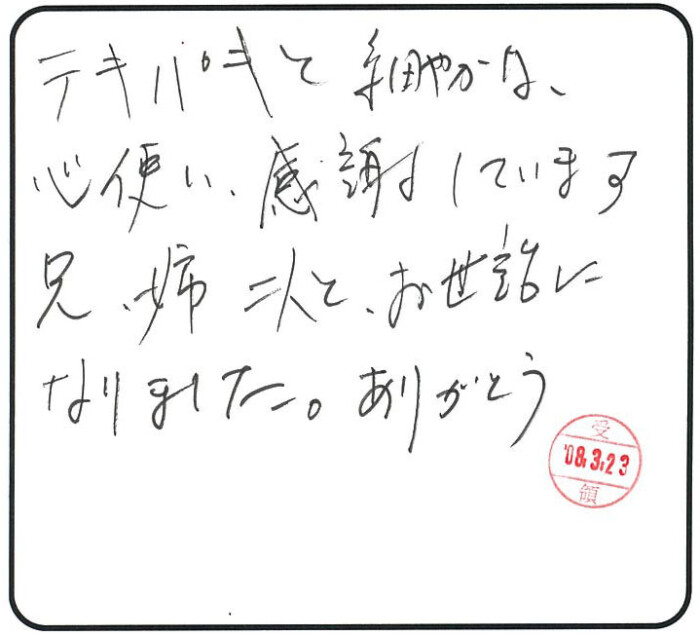 テキパキと細やかな、
心使い、感謝しています
兄、姉 二人と、お世話に
なりました。ありがとう
受
'08.3.23
領